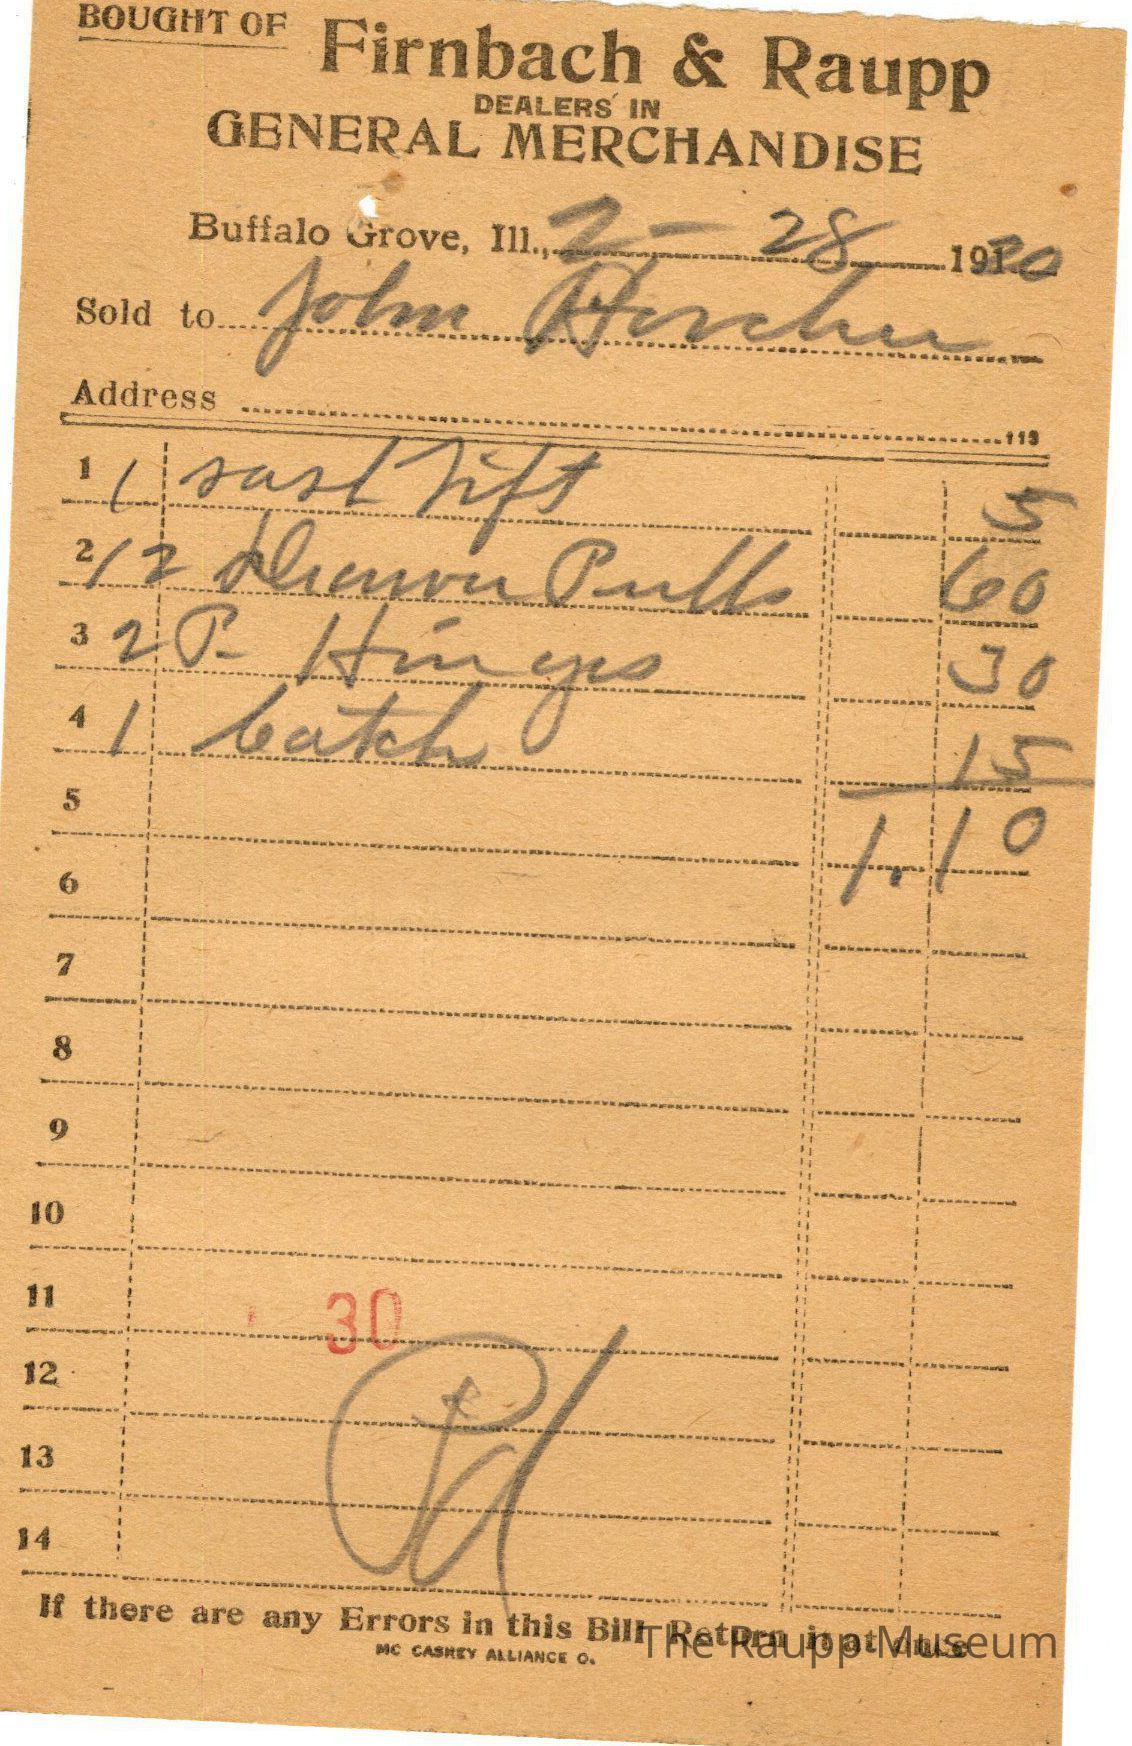 BOUGHT OF Firnbach & Raupp
DEALERS IN
GENERAL MERCHANDISE
Buffalo Grove, Ill., 2 - 28 1920
Sold to John
Address
113
1 1 sash lift 5
2 12 Drawer Pulls 60
3 2 P. Hinges 30
4 1 Catch 15
5 1.10
6
7
8
9
10
11 30
12
13 Pd
14
If there are any Errors in this Bill Return it at once
MC CASKEY ALLIANCE O.
The Raupp Museum